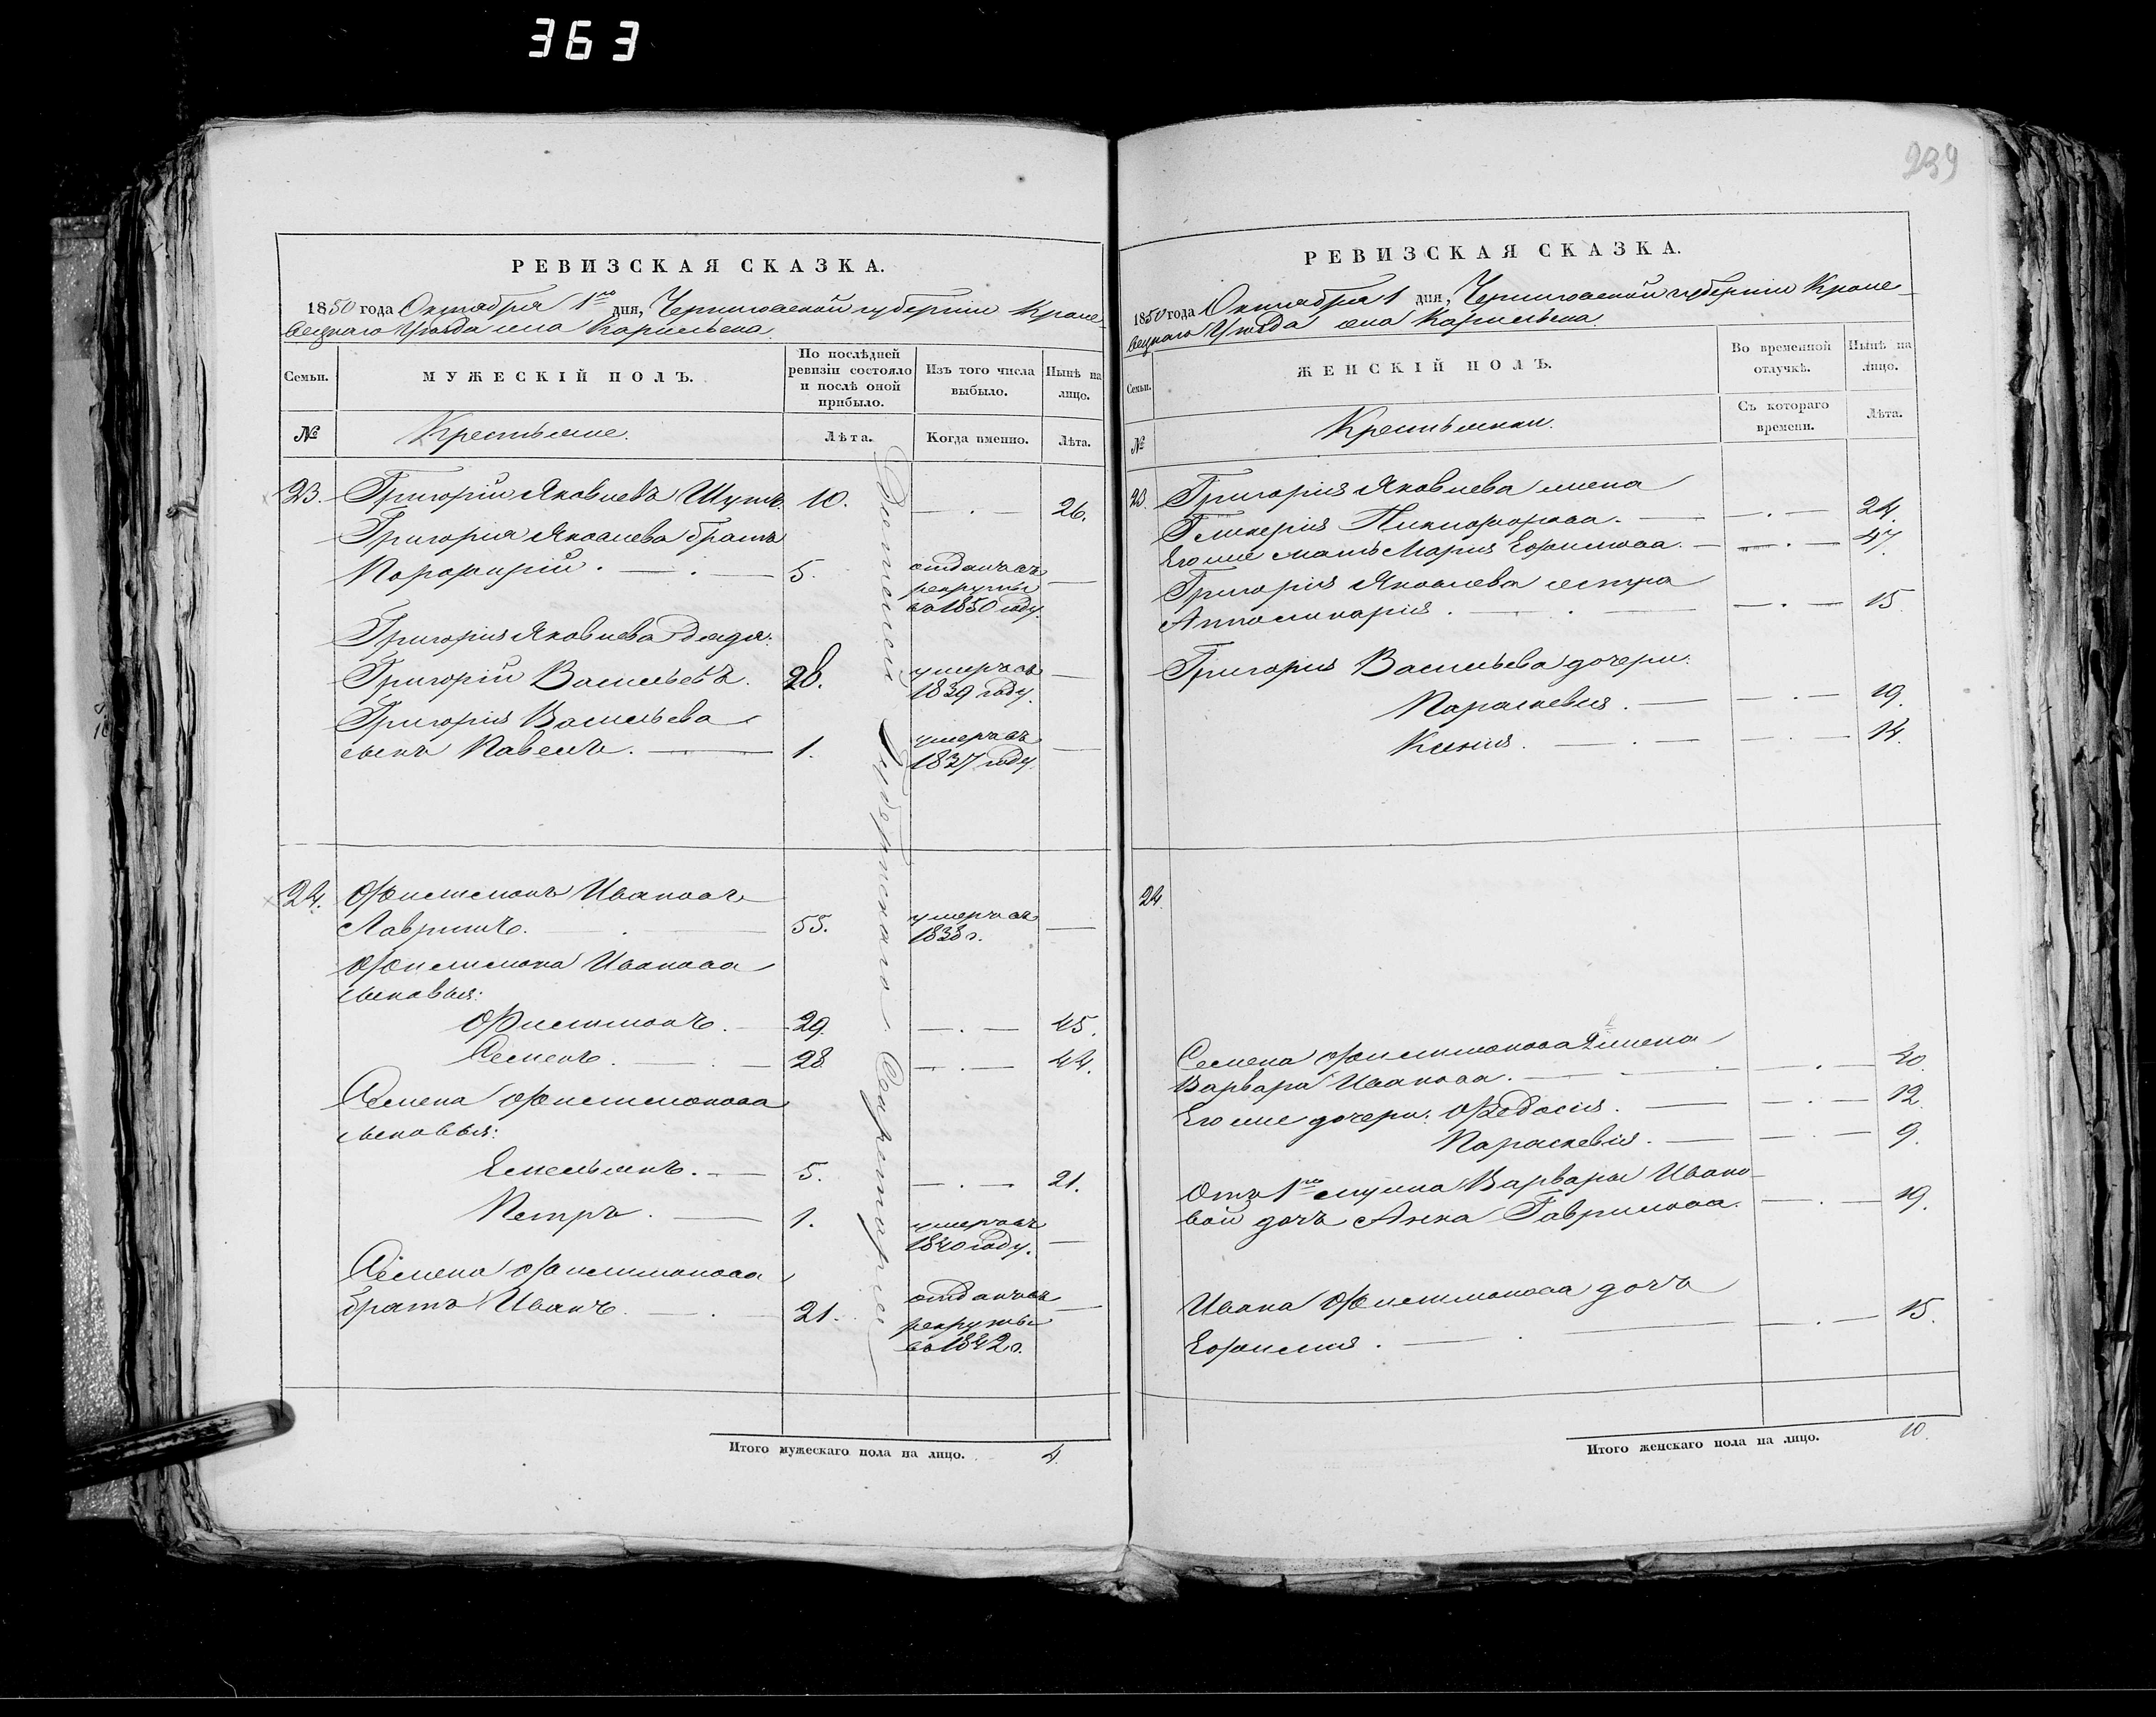 363
РЕВИЗСКАЯ СКАЗКА.
1850 года Октября 1го дня, Черниговской губерніи Кроле-
вецкаго Уѣзда села Карильска.
Семьи.
МУЖЕСКІЙ ПОЛЪ.
По послѣдней ревизіи состояло и послѣ оной прибыло.
Изъ того числа выбыло.
Нынѣ на лицо.
№
Крестьяне.
Лѣта.
Когда именно.
Лѣта.
23. Григорій Яковлевъ Шутъ. 10. — . — 26.
Григорія Яковлева братъ
Порфирій. — . — 5. отданъ въ рекруты въ 1850 году. —
Григорія Яковлева дядя:
Григорій Васильевъ. 28. умеръ въ 1839 году. —
Григорія Васильева
сынъ Павелъ. — 1. умеръ въ 1837 году. —
24. Филимонъ Ивановъ
Лавринъ. — . — 55. умеръ въ 1838 г. —
Филимона Иванова
сыновья:
Филимонъ. — 29. — . — 45.
Семенъ. — . — 28. — . — 44.
Семена Филимонова
сыновья:
Емельянъ. — 5. — . — 21.
Петръ. — 1. умеръ въ 1840 году. —
Семена Филимонова
братъ Иванъ. — . 21. отданъ въ рекруты въ 1842 г. —
Губернскаго Секретаря
Итого мужескаго пола на лицо. 4.
239
РЕВИЗСКАЯ СКАЗКА.
1850 года Октября 1 дня, Черниговской губерніи Кроле-
вецкаго Уѣзда села Карильска.
Семьи.
ЖЕНСКІЙ ПОЛЪ.
Во временной отлучкѣ.
Нынѣ на лицо.
№
Крестьянки.
Съ котораго времени.
Лѣта.
23. Григорія Яковлева жена
Гликерія Никифорова. — — . — 24.
Его же мать Марія Ефимова. — — . — 47.
Григорія Яковлева сестра
Апполинарія. — . — — . — 15.
Григорія Васильева дочери:
Параскевія. — — . — 19.
Ксенія. — . — — . — 14.
24.
Семена Филимонова 2я жена
Варвара Иванова. — . — . — 40.
Его же дочери: Феодосія. — — . — 12.
Параскевія. — — . — 9.
Отъ 1го мужа Варвары Ивано-
вой дочь Анна Гаврилова. — . — 19.
Ивана Филимонова дочь
Ефимія. — . — — . — 15.
Итого женскаго пола на лицо. 10.